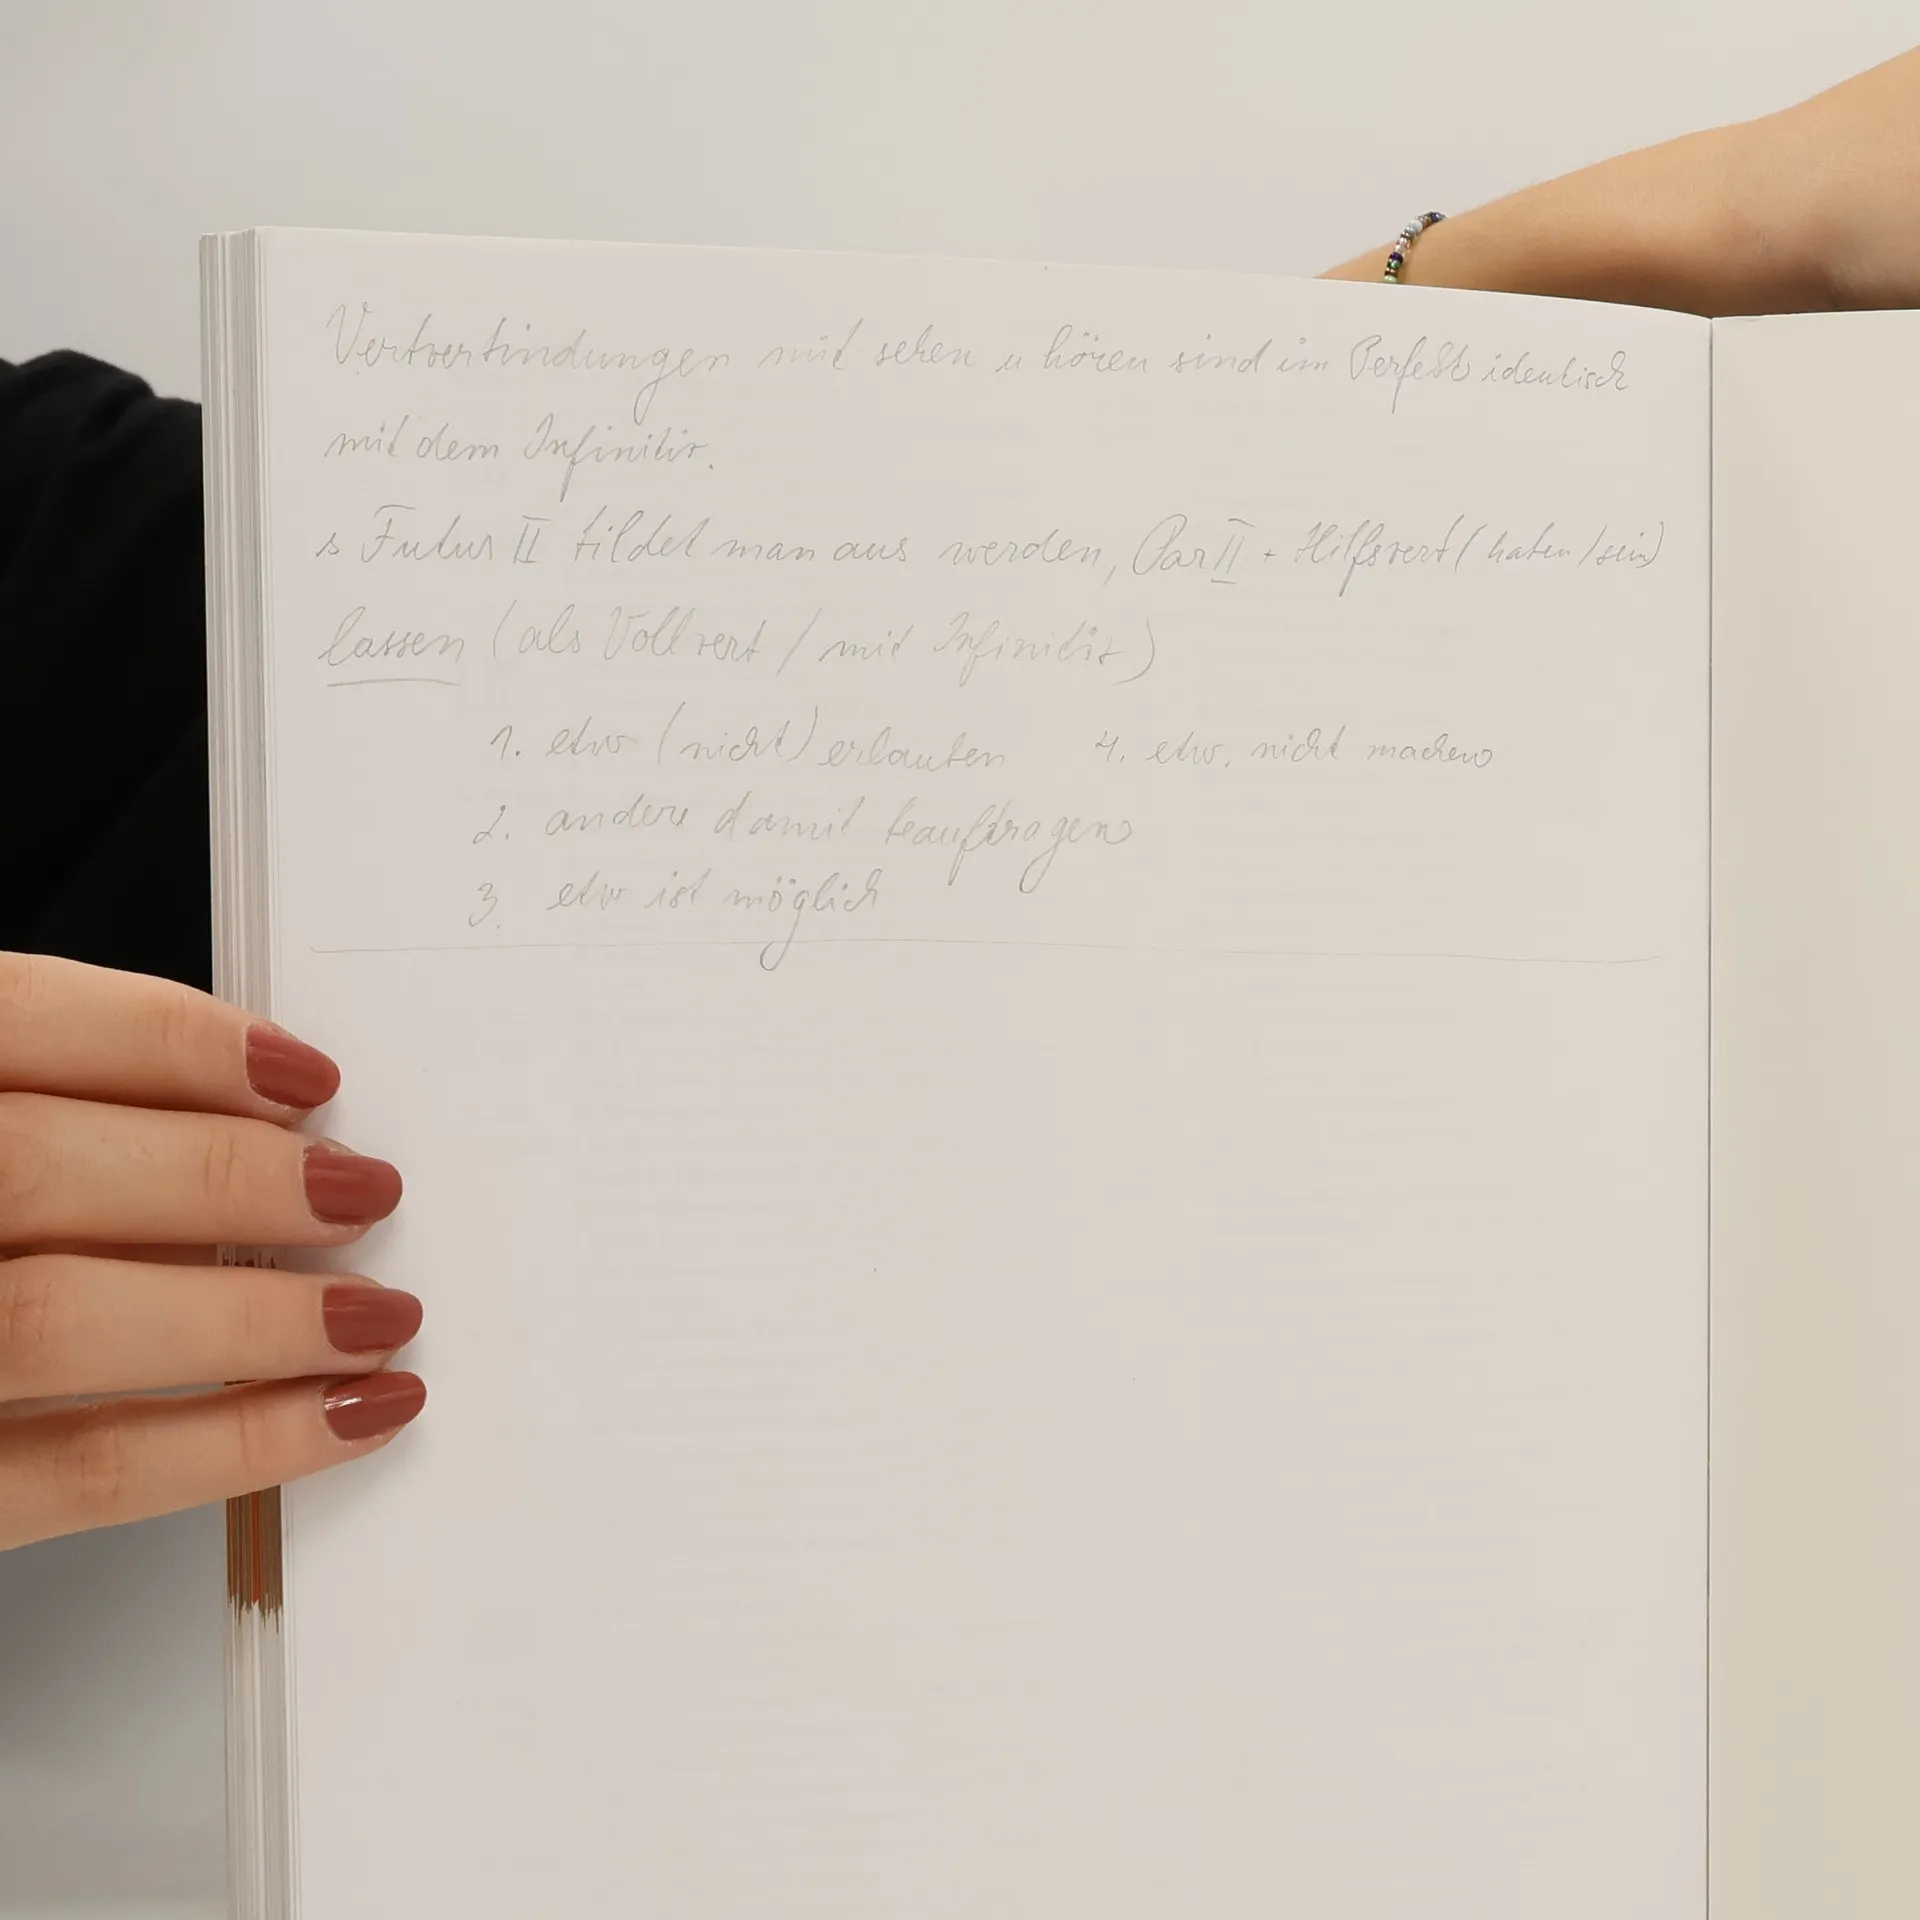 Verbverbindungen mit sehen u hören sind im Perfekt identisch
mit dem Infinitiv.
s Futur II bildet man aus werden, Par II + Hilfsverb (haben/sein)
lassen (als Vollverb / mit Infinitiv)
1. etw (nicht) erlauben 4. etw. nicht machen
2. andere damit beauftragen
3. etw ist möglich